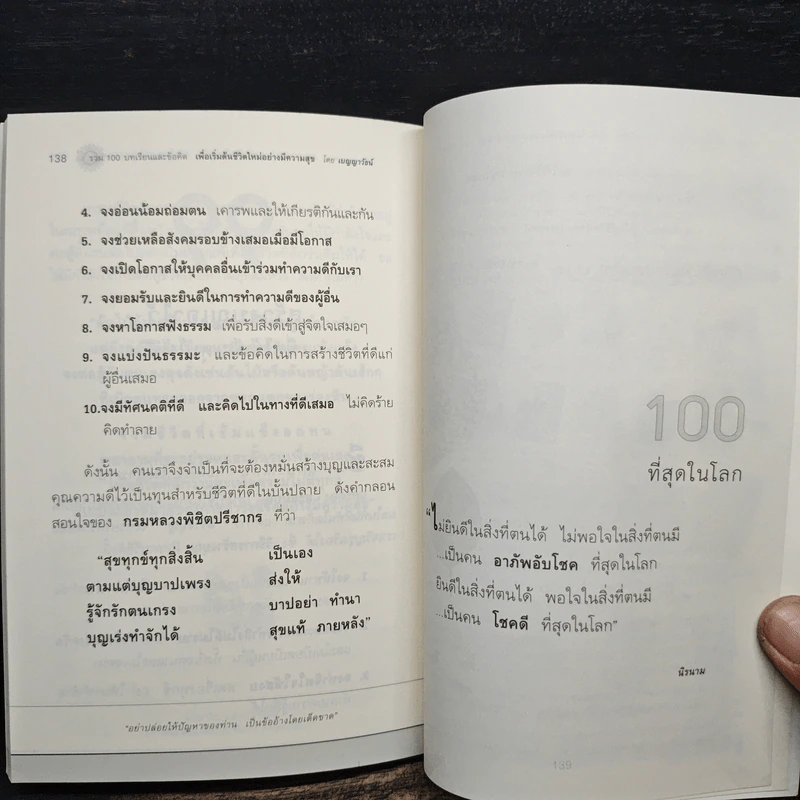 138 รวม 100 บทเรียนและข้อคิด เพื่อเริ่มต้นชีวิตใหม่อย่างมีความสุข โดย เบญญารัตน์
4. จงอ่อนน้อมถ่อมตน เคารพและให้เกียรติกันและกัน
5. จงช่วยเหลือสังคมรอบข้างเสมอเมื่อมีโอกาส
6. จงเปิดโอกาสให้บุคคลอื่นเข้าร่วมทำความดีกับเรา
7. จงยอมรับและยินดีในการทำความดีของผู้อื่น
8. จงหาโอกาสฟังธรรม เพื่อรับสิ่งดีเข้าสู่จิตใจเสมอๆ
9. จงแบ่งปันธรรมะ และข้อคิดในการสร้างชีวิตที่ดีแก่
ผู้อื่นเสมอ
10.จงมีทัศนคติที่ดี และคิดไปในทางที่ดีเสมอ ไม่คิดร้าย
คิดทำลาย
ดังนั้น คนเราจึงจำเป็นที่จะต้องหมั่นสร้างบุญและสะสม
คุณความดีไว้เป็นทุนสำหรับชีวิตที่ดีในบั้นปลาย ดังคำกลอน
สอนใจของ กรมหลวงพิชิตปรีชากร ที่ว่า
“สุขทุกข์ทุกสิ่งสิ้น เป็นเอง
ตามแต่บุญบาปเพรง ส่งให้
รู้จักรักตนเกรง บาปอย่า ทำนา
บุญเร่งทำจักได้ สุขแท้ ภายหลัง”
“อย่าปล่อยให้ปัญหาของท่าน เป็นข้ออ้างโดยเด็ดขาด”
100
ที่สุดในโลก
“ไม่ยินดีในสิ่งที่ตนได้ ไม่พอใจในสิ่งที่ตนมี
...เป็นคน อาภัพอับโชค ที่สุดในโลก
ยินดีในสิ่งที่ตนได้ พอใจในสิ่งที่ตนมี
...เป็นคน โชคดี ที่สุดในโลก”
นิรนาม
139